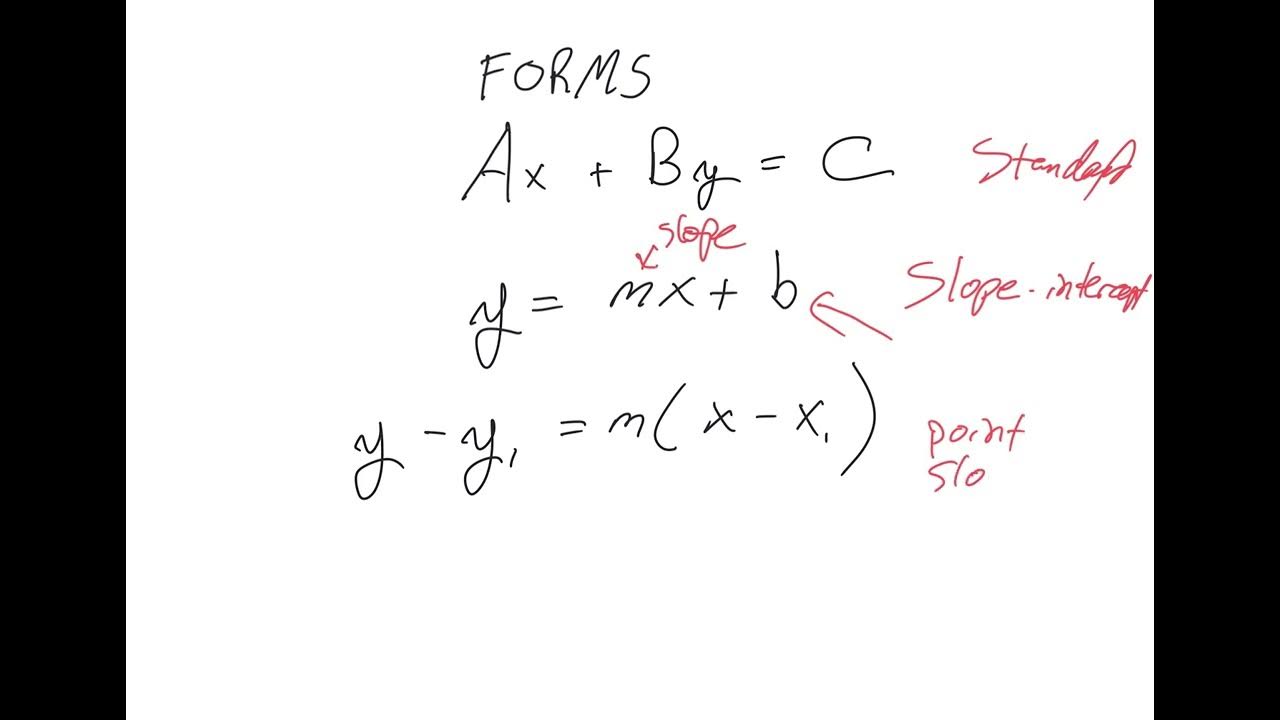 FORMS
Ax + By = C Standard
slope
y = mx + b Slope-intercept
y - y₁ = m(x - x₁) point
slo